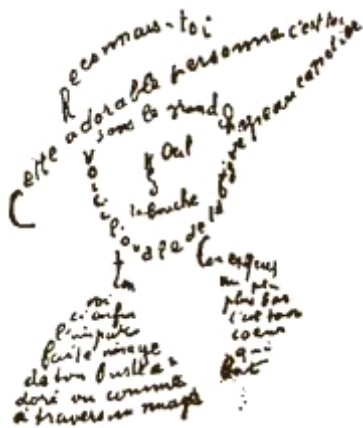 Reconnais-toi
Cette adorable personne c'est toi
sous le grand chapeau canotier
Œil
la bouche
Voici l'ovale de ta figure
ton
Cou exquis
voi
ci enfin
l'impar
faite image
de ton buste a
doré vu comme
à travers un nuage
un peu
plus bas
c'est ton
coeur
qui
bat